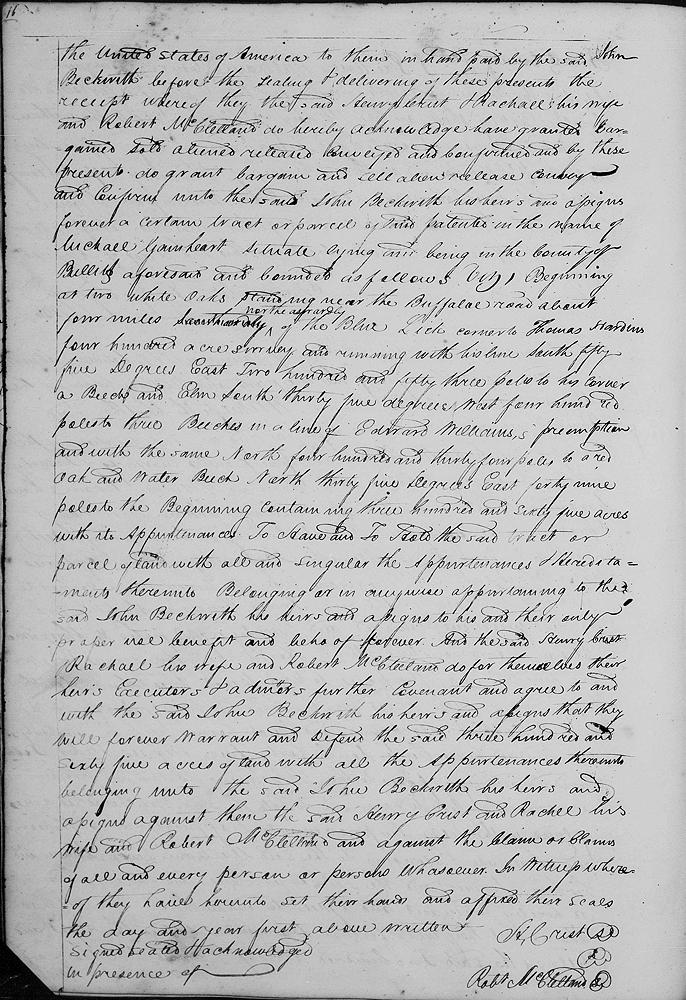 16
the United States of America to them in hand paid by the said John
Beckwith before the sealing & delivering of these presents the
receipt whereof they the said Henry Crist & Rachall his wife
and Robert McClelland do hereby acknowledge have granted bar=
gained sold aliened released conveyed and confirmed and by these
presents do grant bargain and sell alien release convey
and confirm unto the said John Beckwith his heirs and assigns
forever a certain tract or parcel of land patented in the name of
Michael Gainheart situate lying and being in the County of
Bullitt aforesaid and bounded as follows Viz) Beginning
at two white oaks standing near the Buffaloe road about
four miles northeasterly of the Blue Lick corner to Thomas Hardins
four hundred acre survey and running with his line South fifty
five Degrees East Two hundred and fifty three poles to his corner
a Beech and Elm South thirty five degrees West four hundred
poles to three Beeches in a line of Edward Williams,s preemption
and with the same North four hundred and thirty four poles to a red
Oak and Water Beech North thirty five Degrees East forty nine
poles to the Beginning containing three hundred and sixty five acres
with its Appurtenances To Have and To Hold the said tract or
parcel of land with all and singular the Appurtenances & Heredita=
=ments thereunto Belonging or in anywise appurtaining to the
said John Beckwith his heirs and assigns to his and their only
proper use benefit and behoof forever. And the said Henry Crist
Rachael his wife and Robert McClelland do for themselves their
heirs Executors & admtors further Covenant and agree to and
with the said John Beckwith his heirs and assigns that they
will forever Warrant and Defend the said three hundred and
sixty five acres of land with all the Appurtenances thereunto
belonging unto the said John Beckwith his heirs and
assigns against them the said Henry Crist and Rachel his
wife and Robert McClelland and against the Claim or Claims
of all and every person or persons Whasoever. In Witness where=
=of they have hereunto set their hands and affixed their seals
the day and year first above written
H, Crist
Signed sealed & acknowledged
in presence of
Robt McClelland